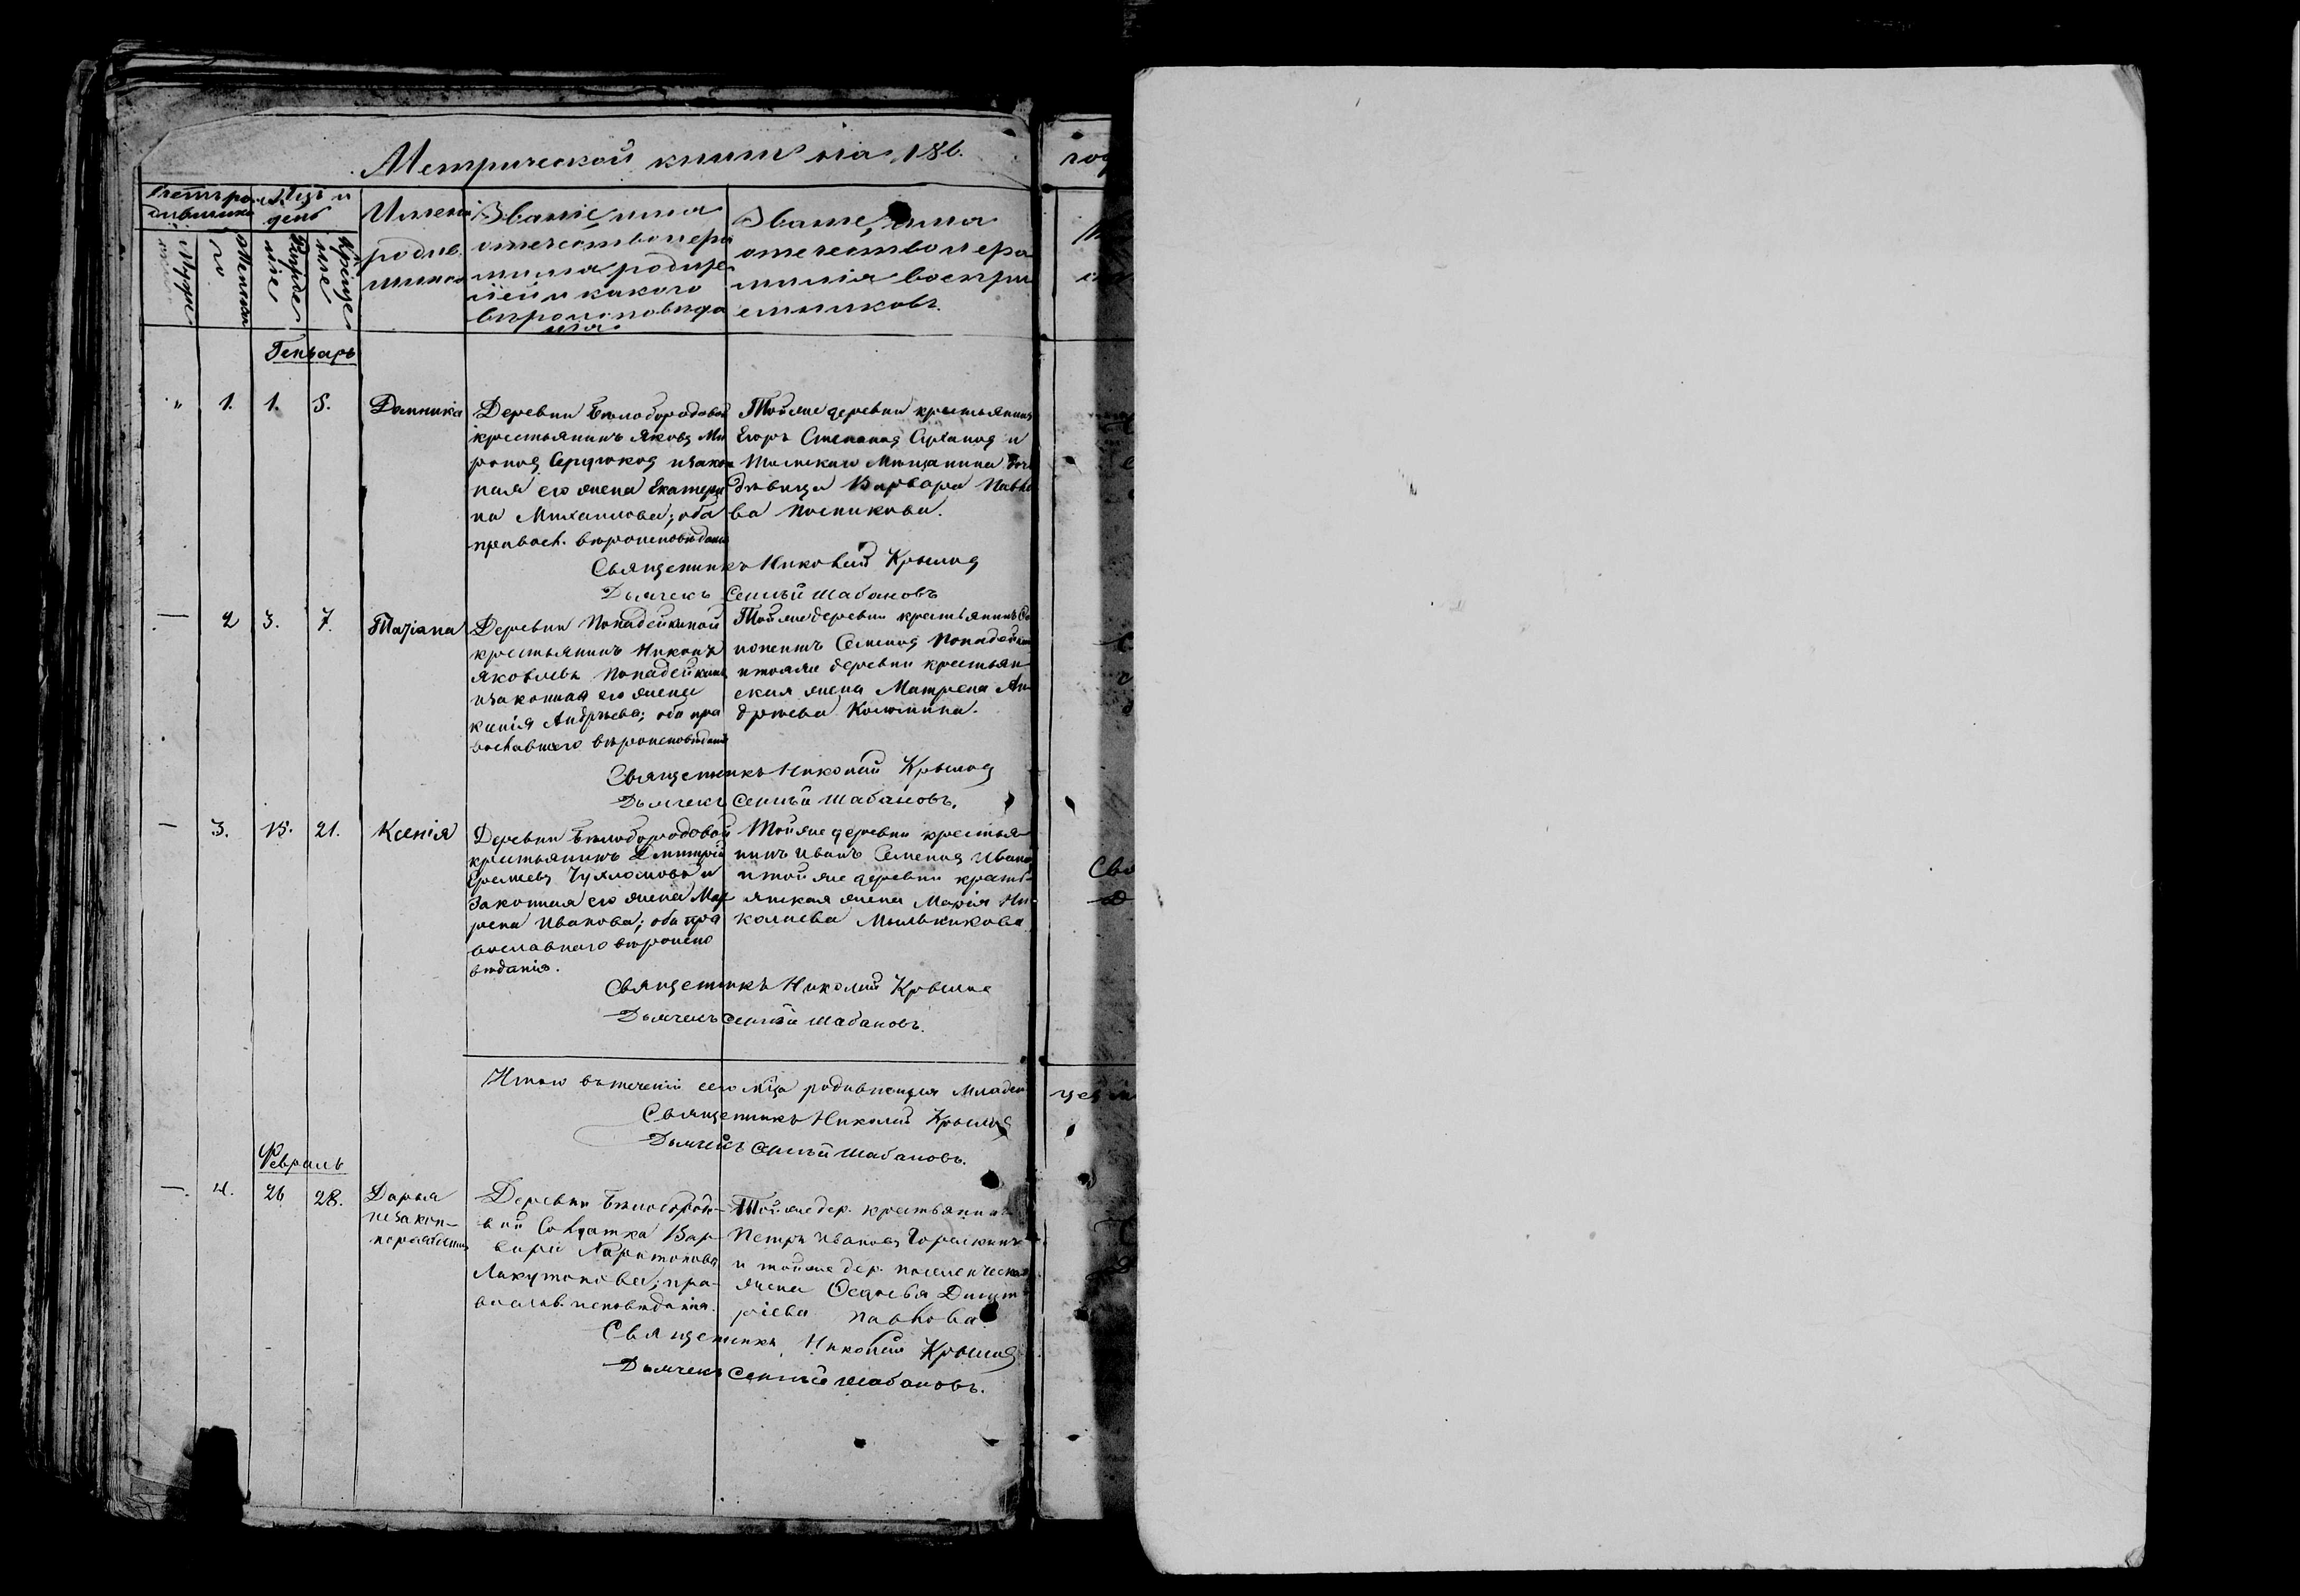 Метрической книги на 186.
Счетъ родившихся
Мцъ и день
Мужескаго
Женскаго
Рожденіе
Крещеніе
Имена родившихся
Званіе, имя
отечество и фа
милія родите
лей и какого
вѣроисповѣда
нія.
Званіе, имя
отечество и фа
милія воспрі
емниковъ.
Генварь
" 1. 1. 5. Домника
Деревни Бѣлобородовой
крестьянинъ Яковъ Ми
роновъ Сердюковъ и закон
ная его жена Екатери
на Михаилова; оба
правосл. вѣроисповѣданія
Тойже деревни крестьянинъ
Егоръ Степановъ и
мѣщанина дочь
дѣвица Варвара Павло
ва
Священникъ Николай Крыловъ
Дьячекъ Сергѣй Шабановъ
— 2 3. 7. Татіана
Деревни Попадейкиной
крестьянинъ Никонъ
Яковлевъ Попадейкинъ
и законная его жена
Ксенія Андрѣева; оба пра
вославнаго вѣроисповѣданія
Тойже деревни крестьянинъ
Семеновъ Попадейкинъ
и тояже деревни крестьян
ская жена Матрена Ан
дрѣева
Священникъ Николай Крыловъ
Дьячекъ Сергѣй Шабановъ.
— 3. 15. 21. Ксенія
Деревни Бѣлобородовой
крестьянинъ Дмитрій
Чухломовъ и
законная его жена Мат
рена Иванова; оба пра
вославнаго вѣроиспо
вѣданія.
Тойже деревни крестья
нинъ Иванъ Семеновъ Ивановъ
и тойже деревни кресть
янская жена Марія Ни
колаева Мыльникова
Священникъ Николай Крыловъ
Дьячекъ Сергѣй Шабановъ.
Итого въ теченіи сего мца родившихся младен
Священникъ Николай Крыловъ
Дьячекъ Сергѣй Шабановъ.
Февраль
—. 4. 26 28. Дарья
незакон-
норожденная
Деревни Бѣлобородо-
вой Солдатка Вар-
вара Харитонова
Лакутонова; пра-
вослав. исповѣданія.
Тойже дер. крестьянинъ
Петръ Ивановъ Горяскинъ
и тойже дер. поселенческая
жена Ѳедосья Дмит
ріева Павлова.
Священникъ Николай Крыловъ
Дьячекъ Сергѣй Шабановъ.